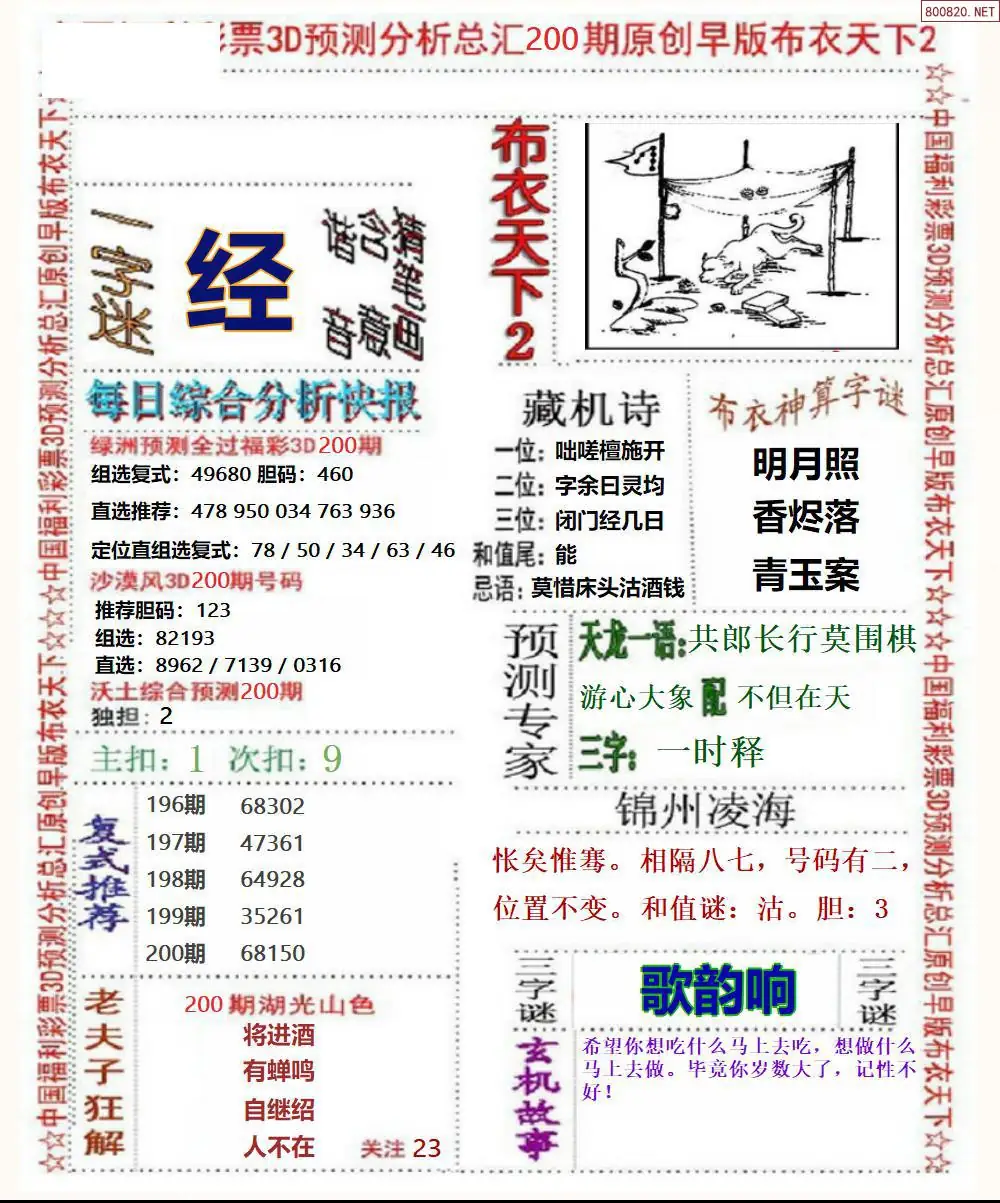 800820.NET
彩票3D预测分析总汇200期原创早版布衣天下2
☆☆中国福利彩票3D预测分析总汇原创早版布衣天下☆☆☆中国福利彩票3D预测分析总汇原创早版布衣天下☆
一字迷
经
猜笔画
含意
谐音
每日综合分析快报
绿洲预测全过福彩3D200期
组选复式：49680 胆码：460
直选推荐：478 950 034 763 936
定位直组选复式：78 / 50 / 34 / 63 / 46
沙漠风3D200期号码
推荐胆码：123
组选：82193
直选：8962 / 7139 / 0316
沃土综合预测200期
独担：2
主扣：1 次扣：9
复式推荐
196期 68302
197期 47361
198期 64928
199期 35261
200期 68150
老夫子狂解
200期湖光山色
将进酒
有蝉鸣
自继绍
人不在 关注 23
布衣天下2
藏机诗
一位：咄嗟檀施开
二位：字余曰灵均
三位：闭门经几日
和值尾：能
忌语：莫惜床头沽酒钱
布衣神算字谜
明月照
香烬落
青玉案
预测专家
天龙一语:共郎长行莫围棋
游心大象 配 不但在天
三字: 一时释
锦州凌海
怅矣惟骞。相隔八七，号码有二，
位置不变。和值谜：沽。胆：3
三字谜
歌韵响
三字谜
玄机故事
希望你想吃什么马上去吃，想做什么
马上去做。毕竟你岁数大了，记性不
好！
☆☆中国福利彩票3D预测分析总汇原创早版布衣天下☆☆☆中国福利彩票3D预测分析总汇原创早版布衣天下☆☆